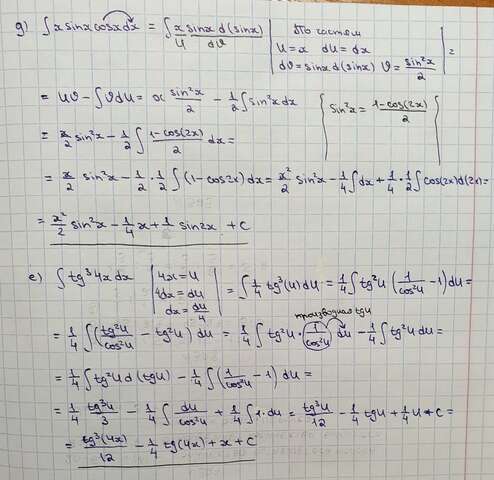 д) ∫ x sinx cosx dx = ∫ x sinx d(sinx) | По частям
u dϑ | u = x du = dx
dϑ = sinx d(sinx) ϑ = sin²x/2 | =
= uϑ - ∫ϑdu = x sin²x/2 - 1/2 ∫ sin²x dx { sin²x = 1-cos(2x)/2 }
= x/2 sin²x - 1/2 ∫ 1-cos(2x)/2 dx =
= x/2 sin²x - 1/2 · 1/2 ∫ (1-cos2x) dx = x²/2 sin²x - 1/4 ∫dx + 1/4 · 1/2 ∫ cos(2x) d(2x) =
= x²/2 sin²x - 1/4 x + 1/8 sin2x + C
е) ∫ tg³4x dx | 4x = u | = ∫ 1/4 tg³(u) du = 1/4 ∫ tg²u (1/cos²u - 1) du =
4dx = du
dx = du/4
производная tgu
= 1/4 ∫ (tg²u/cos²u - tg²u) du = 1/4 ∫ tg²u · 1/cos²u du - 1/4 ∫ tg²u du =
= 1/4 ∫ tg²u d(tgu) - 1/4 ∫ (1/cos²u - 1) du =
= 1/4 tg³u/3 - 1/4 ∫ du/cos²u + 1/4 ∫ 1·du = tg³u/12 - 1/4 tgu + 1/4 u + C =
= tg³(4x)/12 - 1/4 tg(4x) + x + C